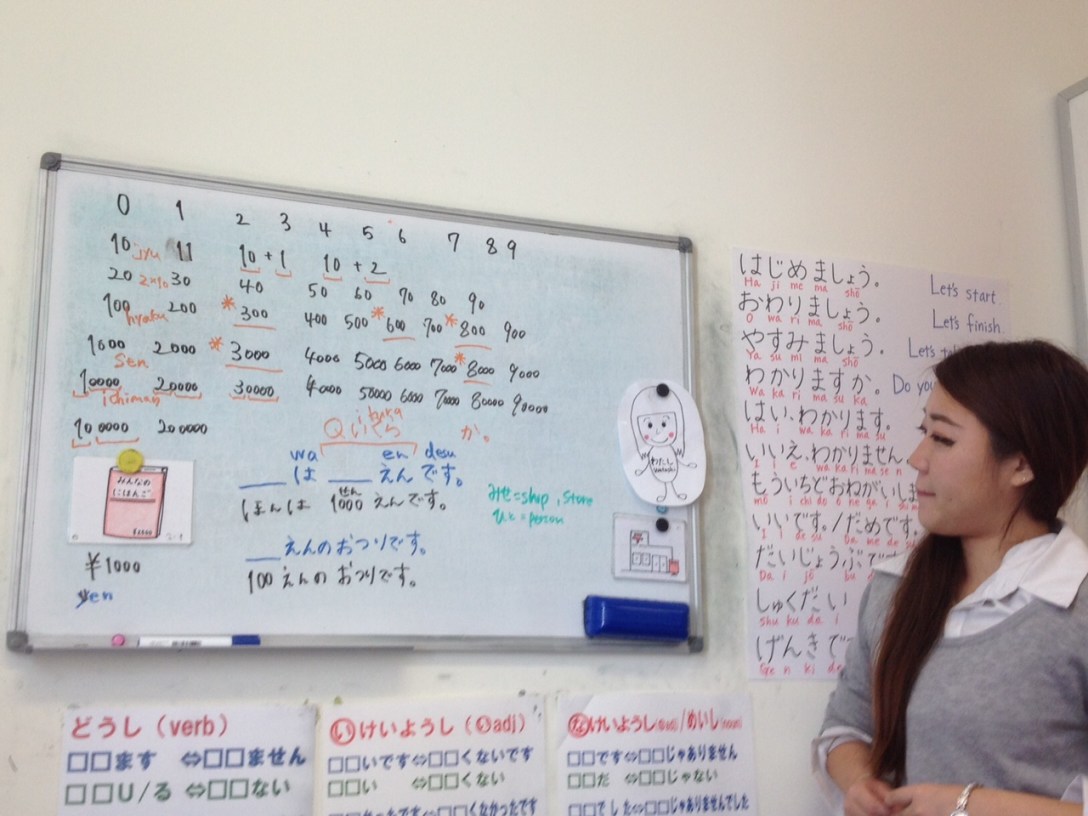 0 1 2 3 4 5 6 7 8 9
10 jyu 11 10 + 1 10 + 2
20 2×10 30 40 50 60 70 80 90
100 hyaku 200 *300 400 500 *600 700 *800 900
1000 2000 *3000 4000 5000 6000 7000 *8000 9000
Sen
10000 20000 30000 40000 50000 6000 7000 80000 90000
ichiman
100000 200000
Q いくら か。
wa en desu
___は ___えんです。
ほんは 1000 えんです。
せん
みせ=ship, Store
ひと=person
___えんのおつりです。
100 えんの おつりです。
みんなの
にほんご
¥1000
yen
わたし
はじめましょう。 Let's start
Ha ji me ma shō
おわりましょう。 Let's finish
O wa ri ma shō
やすみましょう。 Let's
Ya su mi ma shō
わかりますか。 Do you
Wa ka ri ma su ka
はい、わかります。
Ha i wa ka ri ma su
いいえ、わかりません。
I i e wa ka ri ma se n
もういちどおねがいしま
mō i chi do o ne ga i shi ma
いいです。/だめです。
I i de su Da me de su
だいじょうぶで
Da i jō bu
しゅくだい
shu ku da i
げんきで
Ge n ki de
どうし (verb)
□□ます ⇔□□ません
□□U/る ⇔□□ない
いけいようし (い adj)
□□いです⇔□□くないです
□□い ⇔□□くない
□□かったです⇔□□くなかったです
なけいようし(な adj)/めいし(noun)
□□です⇔□□じゃありません
□□だ ⇔□□じゃない
□□でした⇔□□じゃありませんでした